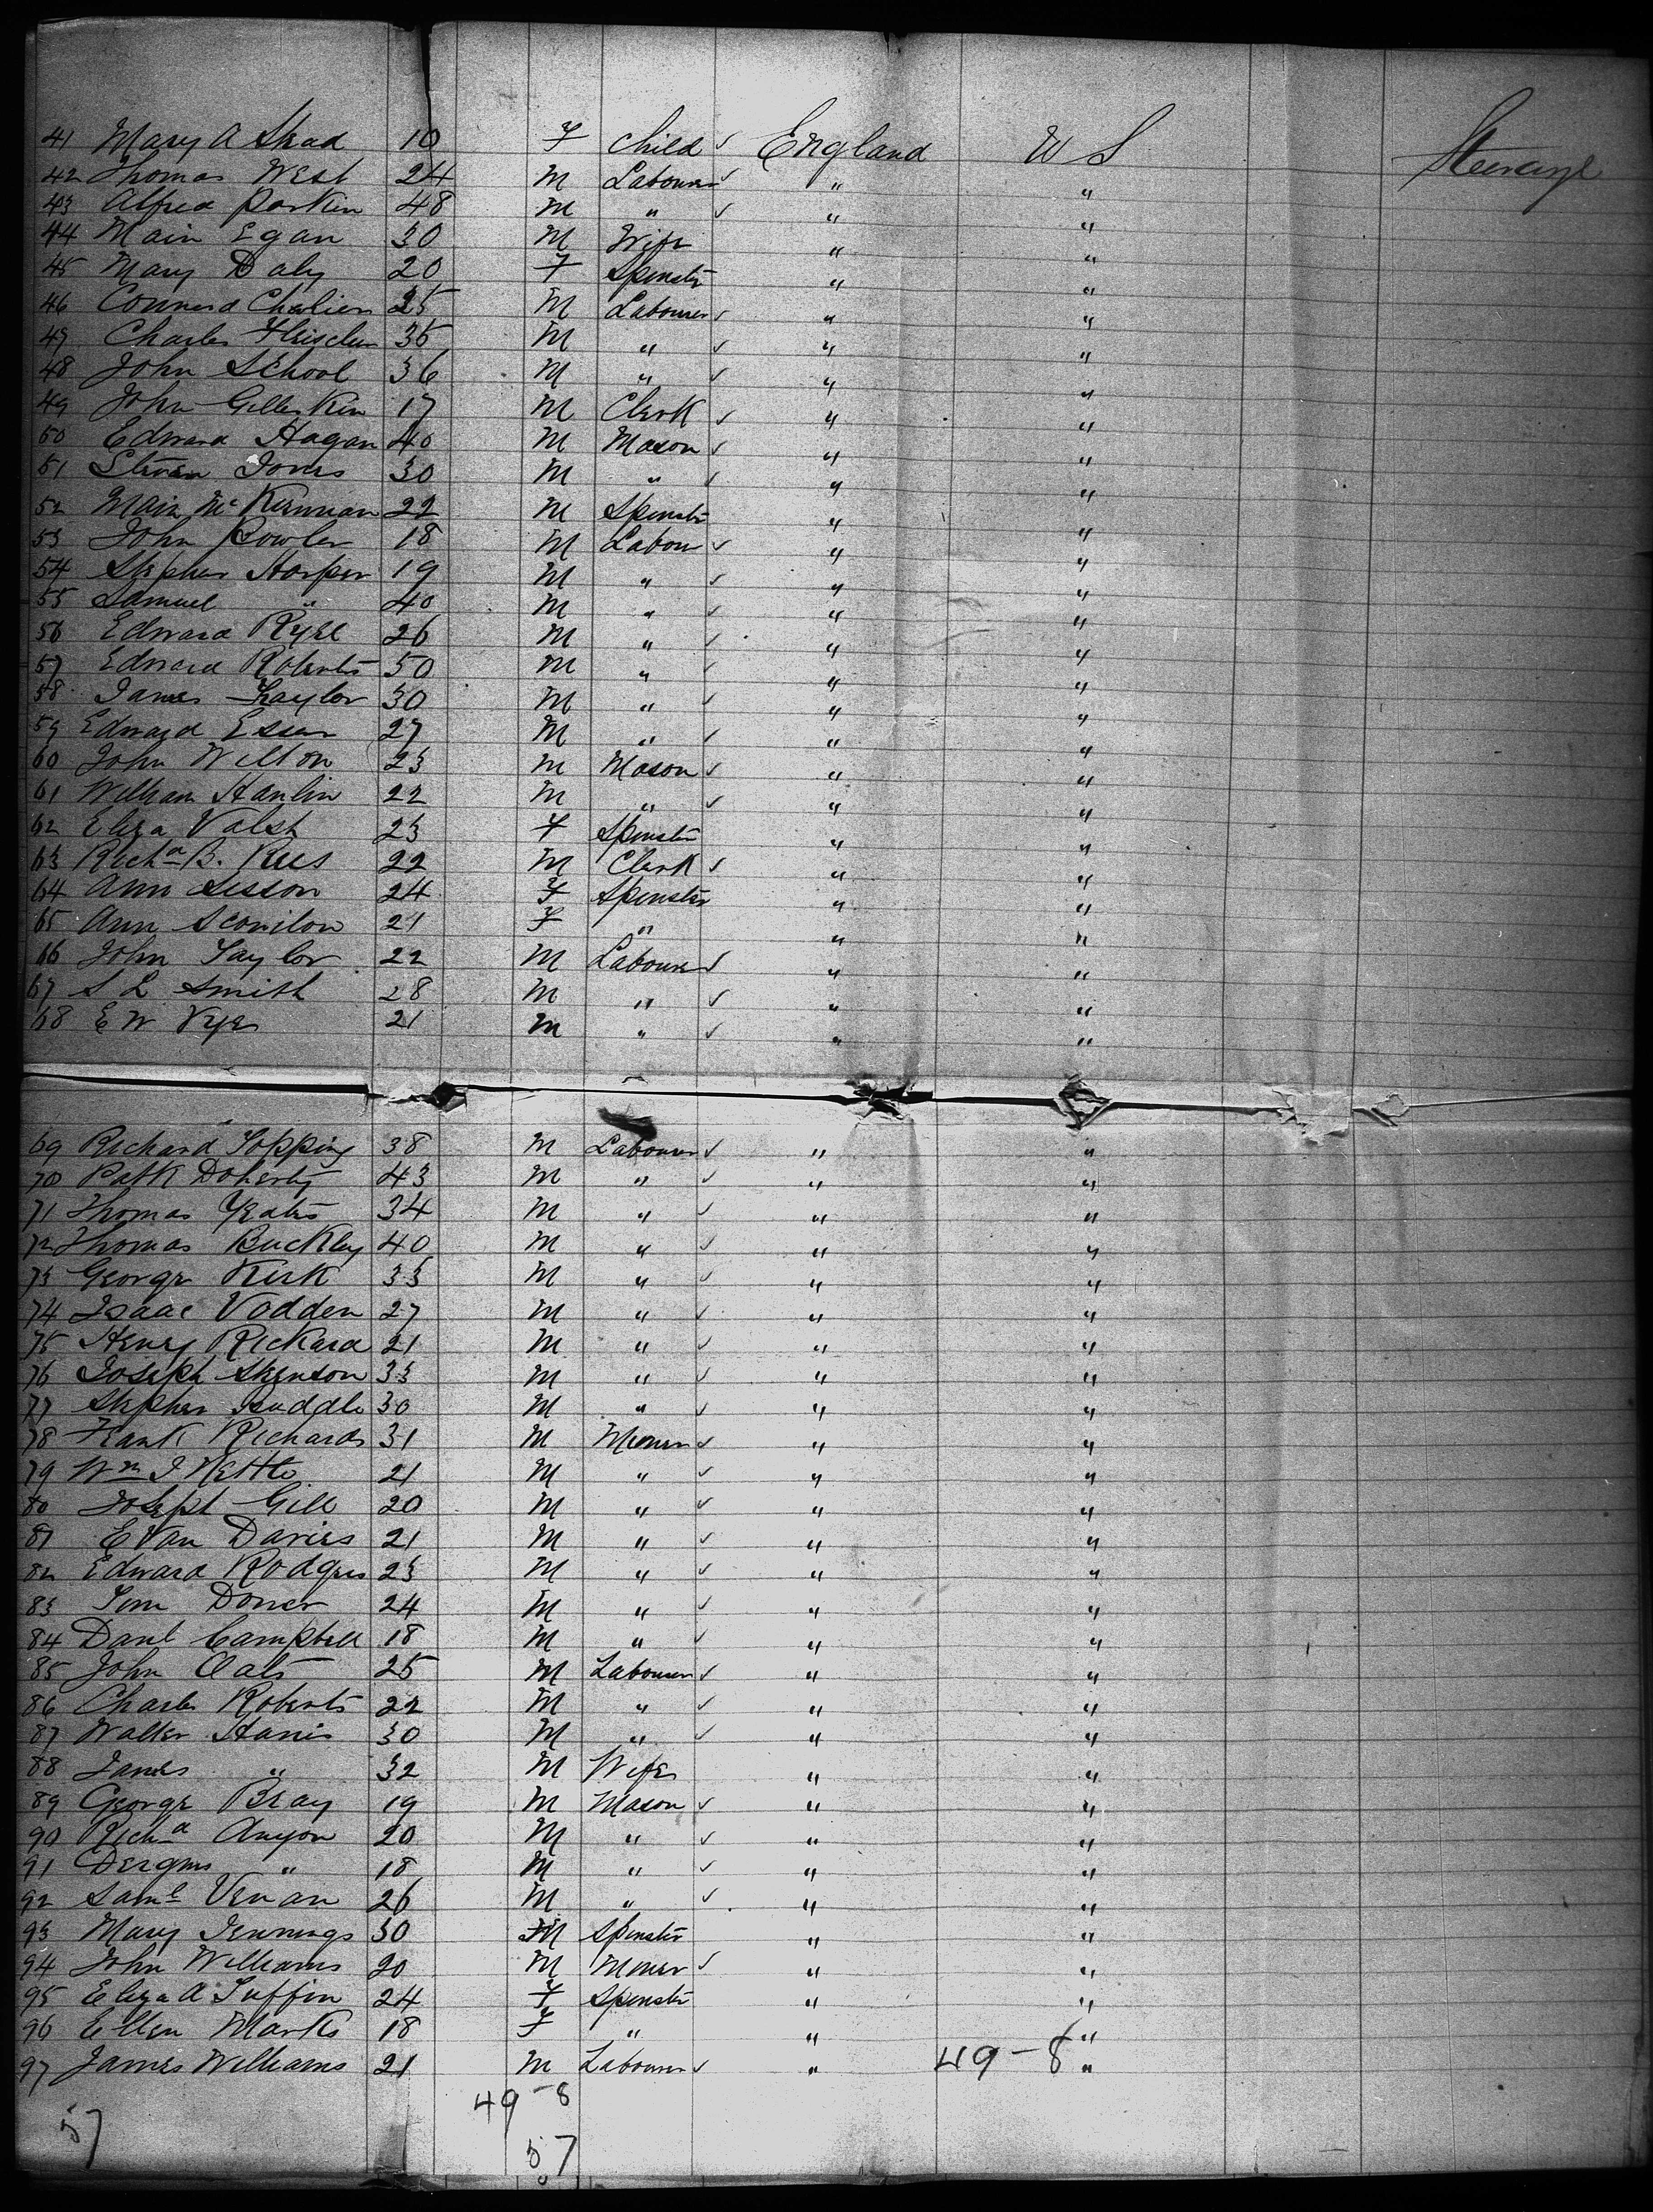 41 Mary A Shad 10 F Child ✓ England U S Steerage
42 Thomas West 24 M Labourer ✓ " "
43 Alfred Parkin 48 M " ✓ " "
44 Main Egan 30 M Wife " "
45 Mary Daly 20 F Spinster " "
46 25 M Labourer ✓ " "
47 Charles 35 M " ✓ " "
48 John School 36 M " ✓ " "
49 John Gillerkin 17 M Clerk ✓ " "
50 Edward Hagan 40 M Mason ✓ " "
51 Steven Jones 30 M " ✓ " "
52 Main McKiernan 22 M Spinster " "
53 John Bowler 18 M Labour ✓ " "
54 Stephen Harper 19 M " ✓ " "
55 Samuel " 40 M " ✓ " "
56 Edward Ryel 26 M " ✓ " "
57 Edward Roberts 50 M " ✓ " "
58 James Traylor 30 M " ✓ " "
59 Edward 27 M " ✓ " "
60 John Wilton 23 M Mason ✓ " "
61 William Hanlin 22 M " ✓ " "
62 Eliza Valsh 23 F Spinster " "
63 Richd B. Rees 22 M Clerk ✓ " "
64 Ann Sisson 24 F Spinster " "
65 Ann 21 F " " "
66 John Taylor 22 M Labourer ✓ " "
67 S L Smith 28 M " ✓ " "
68 E W 21 M " ✓ " "
69 Richard Topping 38 M Labourer ✓ " "
70 Patk Doherty 43 M " ✓ " "
71 Thomas Yeates 34 M " ✓ " "
72 Thomas Buckley 40 M " ✓ " "
73 George Kirk 33 M " ✓ " "
74 Isaac Vodden 27 M " ✓ " "
75 Henry Rickard 21 M " ✓ " "
76 Joseph Skenson 33 M " ✓ " "
77 Stephen 30 M " ✓ " "
78 Frank Richards 31 M Miner ✓ " "
79 Wm J Nettle 21 M " ✓ " "
80 Joseph Gill 20 M " ✓ " "
81 Evan Davies 21 M " ✓ " "
82 Edward Rodgers 23 M " ✓ " "
83 Tim Doner 24 M " ✓ " "
84 Danl Campbell 18 M " ✓ " "
85 John Oats 25 M Labourer ✓ " "
86 Charles Roberts 22 M " ✓ " "
87 Walter Harris 30 M " ✓ " "
88 James " 32 M Wife " "
89 George Bray 19 M Mason ✓ " "
90 Richd Anyon 20 M " ✓ " "
91 " 18 M " ✓ " "
92 Saml Venan 26 M " ✓ " "
93 Mary Jennings 30 M Spinster " "
94 John Williams 20 M Miner ✓ " "
95 Eliza A Tuffin 24 F Spinster " "
96 Ellen Marks 18 F " " "
97 James Williams 21 M Labourer ✓ " 49-8 "
49-8
57
57